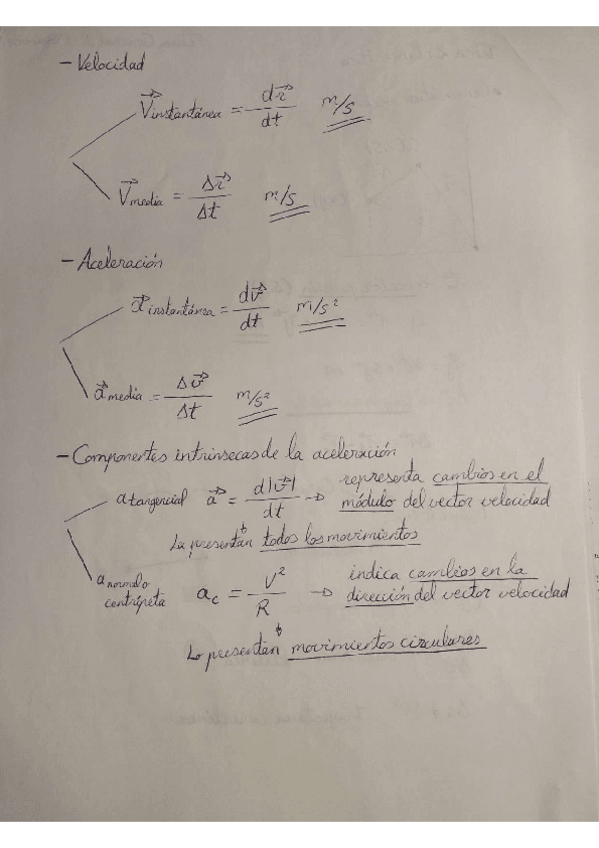 - Velocidad
V⃗ instantánea = dr⃗/dt m/s
V⃗ media = Δr⃗/Δt m/s
- Aceleración
a⃗ instantánea = dv⃗/dt m/s²
a⃗ media = Δv⃗/Δt m/s²
- Componentes intrinsecas de la aceleración
a tangencial a⃗ = d|v⃗|/dt → representa cambios en el
módulo del vector velocidad
La presentan todos los movimientos
a normal o
centrípeta a_c = V²/R → indica cambios en la
dirección del vector velocidad
Lo presentan movimientos circulares